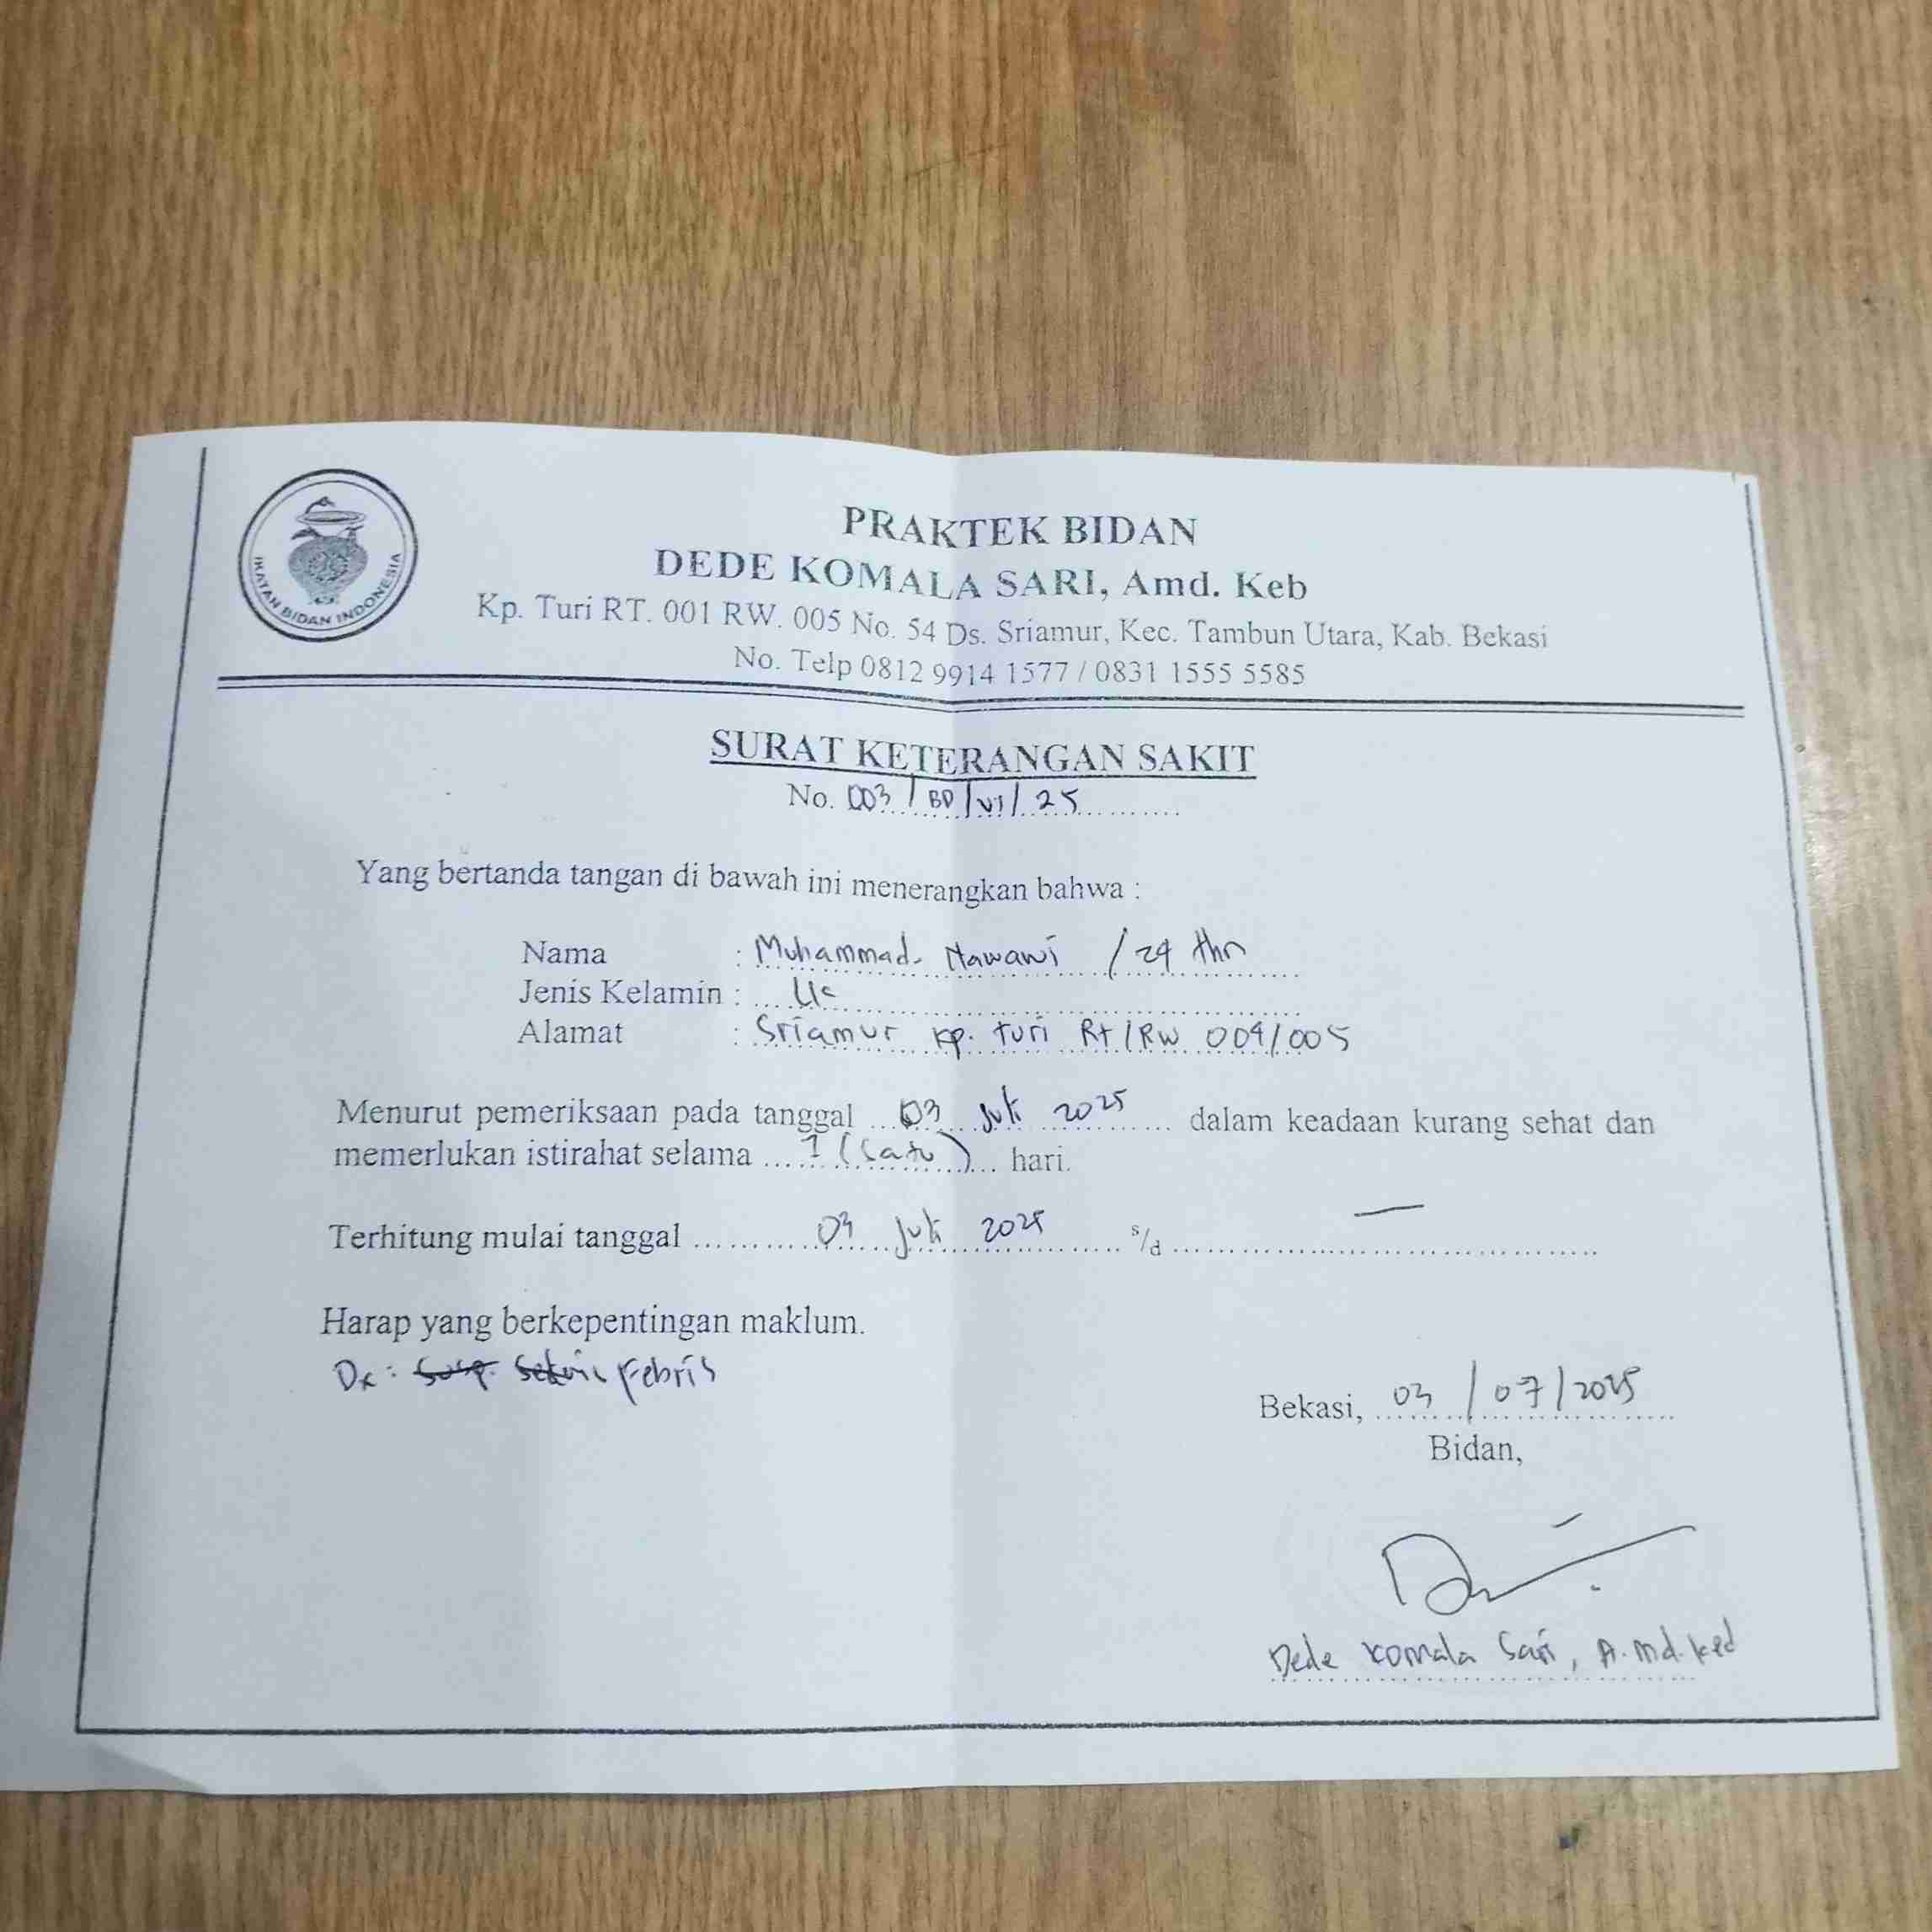 IKATAN BIDAN INDONESIA
PRAKTEK BIDAN
DEDE KOMALA SARI, Amd. Keb
Kp. Turi RT. 001 RW. 005 No. 54 Ds. Sriamur, Kec. Tambun Utara, Kab. Bekasi
No. Telp 0812 9914 1577 / 0831 1555 5585
SURAT KETERANGAN SAKIT
No. 003 / BD / VI / 25
Yang bertanda tangan di bawah ini menerangkan bahwa :
Nama : Muhammad Nawawi / 24 thn
Jenis Kelamin :
Alamat : Sriamur kp. turi Rt/RW 004/005
Menurut pemeriksaan pada tanggal 03 Juli 2025 dalam keadaan kurang sehat dan
memerlukan istirahat selama 1 (satu) hari.
Terhitung mulai tanggal 03 Juli 2025 s/d —
Harap yang berkepentingan maklum.
Dx : Febris
Bekasi, 03 / 07 / 2025
Bidan,
Dede Komala Sari, A.md.keb